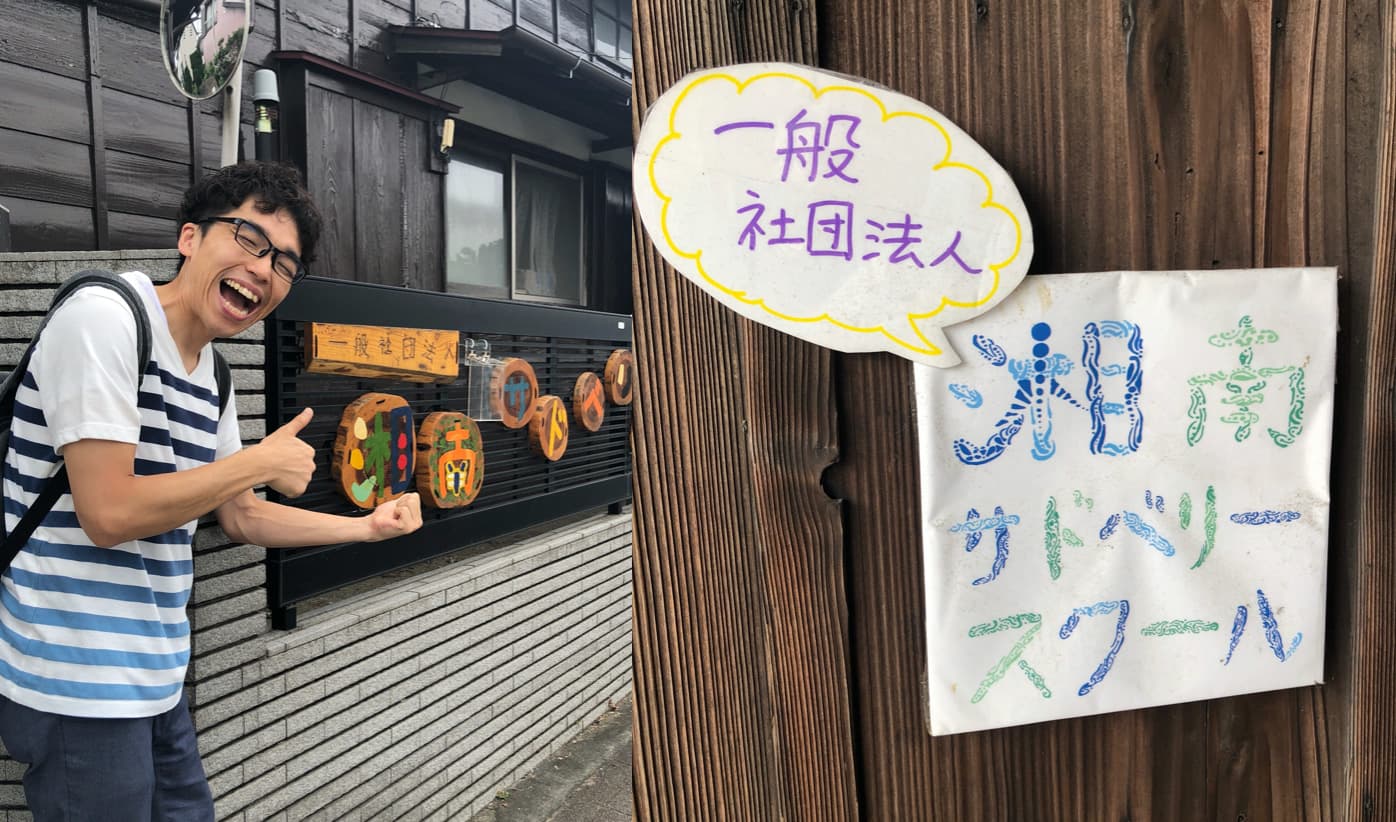 一般社団法人
湘南サドベ
一般
社団法人
湘南
サドベリー
スクール